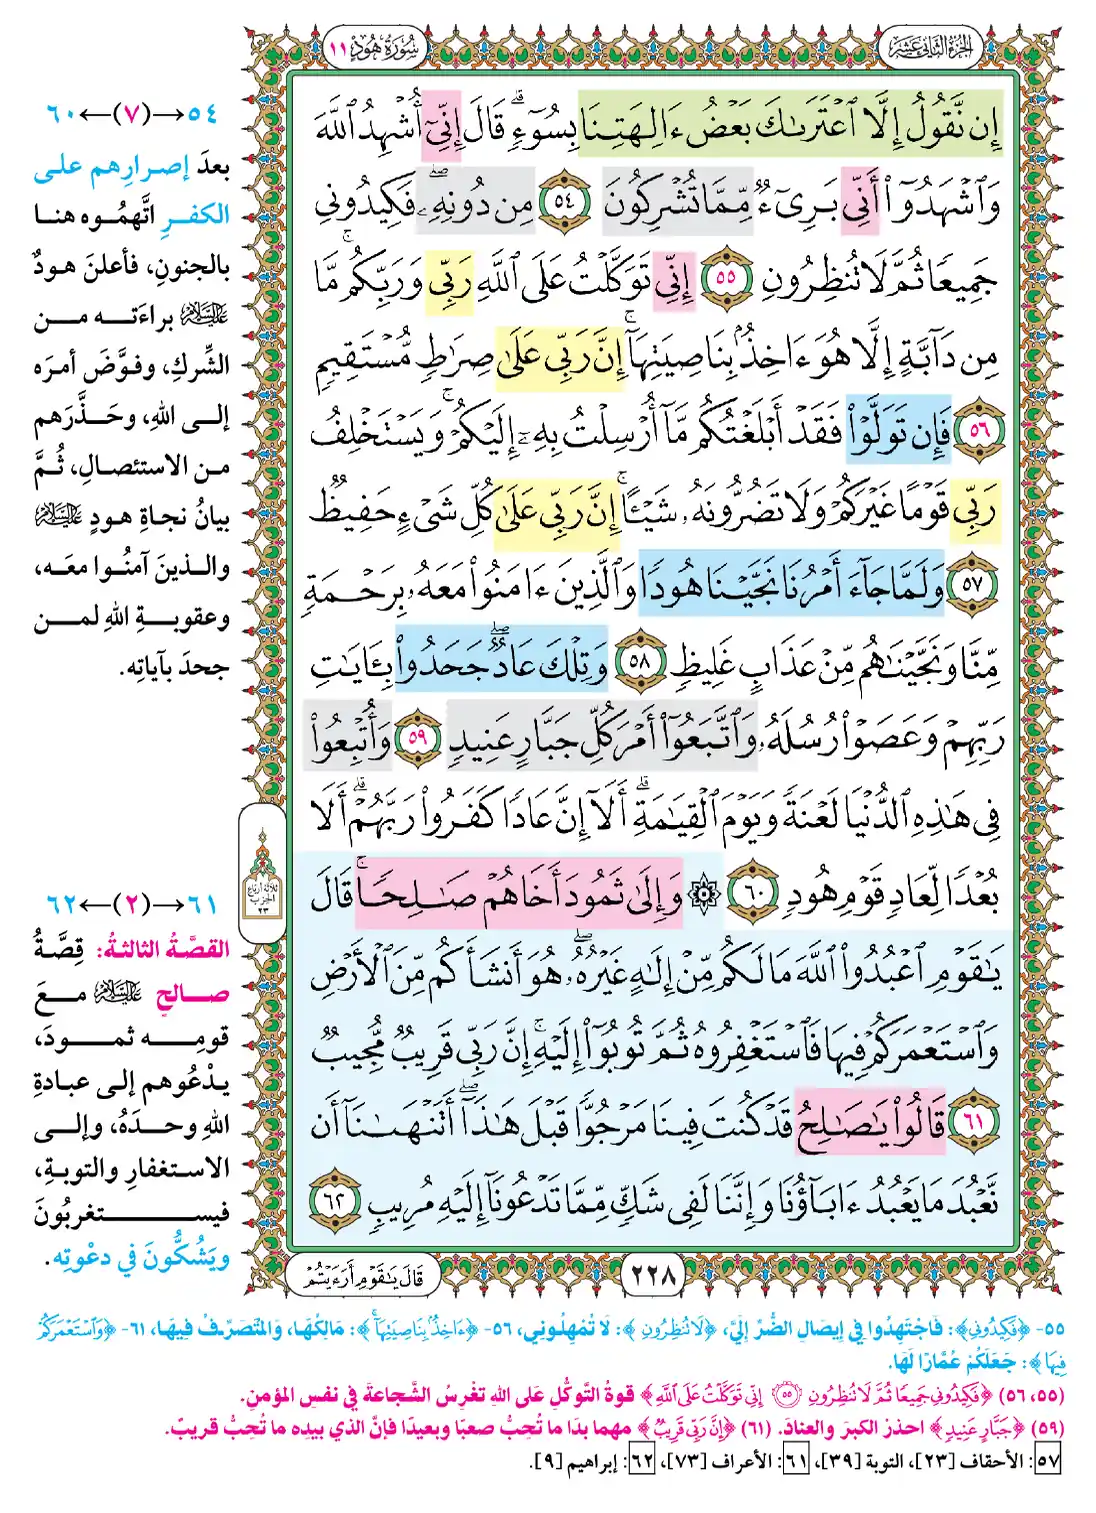 الجزء الثاني عشر
سورة هود ١١
إِن نَّقُولُ إِلَّا ٱعْتَرَىٰكَ بَعْضُ ءَالِهَتِنَا بِسُوٓءٍۗ قَالَ إِنِّىٓ أُشْهِدُ ٱللَّهَ
وَٱشْهَدُوٓا۟ أَنِّى بَرِىٓءٌ مِّمَّا تُشْرِكُونَ ٥٤ مِن دُونِهِۦۖ فَكِيدُونِى
جَمِيعًا ثُمَّ لَا تُنظِرُونِ ٥٥ إِنِّى تَوَكَّلْتُ عَلَى ٱللَّهِ رَبِّى وَرَبِّكُمۚ مَّا
مِن دَآبَّةٍ إِلَّا هُوَ ءَاخِذٌۢ بِنَاصِيَتِهَآۚ إِنَّ رَبِّى عَلَىٰ صِرَٰطٍ مُّسْتَقِيمٍ
٥٦ فَإِن تَوَلَّوْا۟ فَقَدْ أَبْلَغْتُكُم مَّآ أُرْسِلْتُ بِهِۦٓ إِلَيْكُمْۚ وَيَسْتَخْلِفُ
رَبِّى قَوْمًا غَيْرَكُمْ وَلَا تَضُرُّونَهُۥ شَيْـًٔاۚ إِنَّ رَبِّى عَلَىٰ كُلِّ شَىْءٍ حَفِيظٌ
٥٧ وَلَمَّا جَآءَ أَمْرُنَا نَجَّيْنَا هُودًا وَٱلَّذِينَ ءَامَنُوا۟ مَعَهُۥ بِرَحْمَةٍ
مِّنَّا وَنَجَّيْنَٰهُم مِّنْ عَذَابٍ غَلِيظٍ ٥٨ وَتِلْكَ عَادٌۖ جَحَدُوا۟ بِـَٔايَٰتِ
رَبِّهِمْ وَعَصَوْا۟ رُسُلَهُۥ وَٱتَّبَعُوٓا۟ أَمْرَ كُلِّ جَبَّارٍ عَنِيدٍ ٥٩ وَأُتْبِعُوا۟
فِى هَٰذِهِ ٱلدُّنْيَا لَعْنَةً وَيَوْمَ ٱلْقِيَٰمَةِۗ أَلَآ إِنَّ عَادًا كَفَرُوا۟ رَبَّهُمْۗ أَلَا
بُعْدًا لِّعَادٍ قَوْمِ هُودٍ ٦٠ ۞ وَإِلَىٰ ثَمُودَ أَخَاهُمْ صَٰلِحًاۚ قَالَ
يَٰقَوْمِ ٱعْبُدُوا۟ ٱللَّهَ مَا لَكُم مِّنْ إِلَٰهٍ غَيْرُهُۥۖ هُوَ أَنشَأَكُم مِّنَ ٱلْأَرْضِ
وَٱسْتَعْمَرَكُمْ فِيهَا فَٱسْتَغْفِرُوهُ ثُمَّ تُوبُوٓا۟ إِلَيْهِۚ إِنَّ رَبِّى قَرِيبٌ مُّجِيبٌ
٦١ قَالُوا۟ يَٰصَٰلِحُ قَدْ كُنتَ فِينَا مَرْجُوًّا قَبْلَ هَٰذَآۖ أَتَنْهَىٰنَآ أَن
نَّعْبُدَ مَا يَعْبُدُ ءَابَآؤُنَا وَإِنَّنَا لَفِى شَكٍّ مِّمَّا تَدْعُونَآ إِلَيْهِ مُرِيبٍ ٦٢
٢٢٨
قَالَ يَٰقَوْمِ أَرَءَيْتُمْ
٥٤→(٧)←٦٠
بعدَ إصرارِهم على
الكفرِ اتَّهمُوه هنا
بالجنونِ، فأعلنَ هودٌ
عليه السلام براءَته من
الشِّركِ، وفوَّضَ أمرَه
إلى اللهِ، وحَذَّرَهم
من الاستئصالِ، ثُمَّ
بيانُ نجاةِ هودٍ عليه السلام
والذينَ آمنُوا معَه،
وعقوبةِ اللهِ لمن
جحدَ بآياتِه.
ثلاثة أرباع
الحزب
٢٣
٦١→(٢)←٦٢
القصَّةُ الثالثةُ: قِصَّةُ
صالحٍ عليه السلام معَ
قومِه ثمودَ،
يدْعُوهم إلى عبادةِ
اللهِ وحدَهُ، وإلى
الاستغفارِ والتوبةِ،
فيستغربُونَ
ويَشُكُّونَ في دعْوتِه.
٥٥- ﴿فَكِيدُونِي﴾: فَاجْتَهِدُوا فِي إِيصَالِ الضُّرِّ إِلَيَّ، ﴿لَا تُنْظِرُونِ﴾: لَا تُمْهِلُونِي، ٥٦- ﴿ءَاخِذٌۢ بِنَاصِيَتِهَآۚ﴾: مَالِكُهَا، وَالمُتَصَرِّفُ فِيهَا، ٦١- ﴿وَٱسْتَعْمَرَكُمْ
فِيهَا﴾: جَعَلَكُمْ عُمَّارًا لَهَا.
(٥٥، ٥٦) ﴿فَكِيدُونِى جَمِيعًا ثُمَّ لَا تُنظِرُونِ ٥٥ إِنِّى تَوَكَّلْتُ عَلَى ٱللَّهِ﴾ قوةُ التَّوكُّلِ عَلى اللهِ تغْرِسُ الشَّجاعةَ في نفسِ المؤمنِ.
(٥٩) ﴿جَبَّارٍ عَنِيدٍ﴾ احذرْ الكبرَ والعنادَ. (٦١) ﴿إِنَّ رَبِّى قَرِيبٌ﴾ مهما بدَا ما تُحِبُّ صعبًا وبعيدًا فإنَّ الذي بيدِه ما تُحِبُّ قريبٌ.
٥٧: الأحقاف [٢٣]، التوبة [٣٩]، ٦١: الأعراف [٧٣]، ٦٢: إبراهيم [٩].